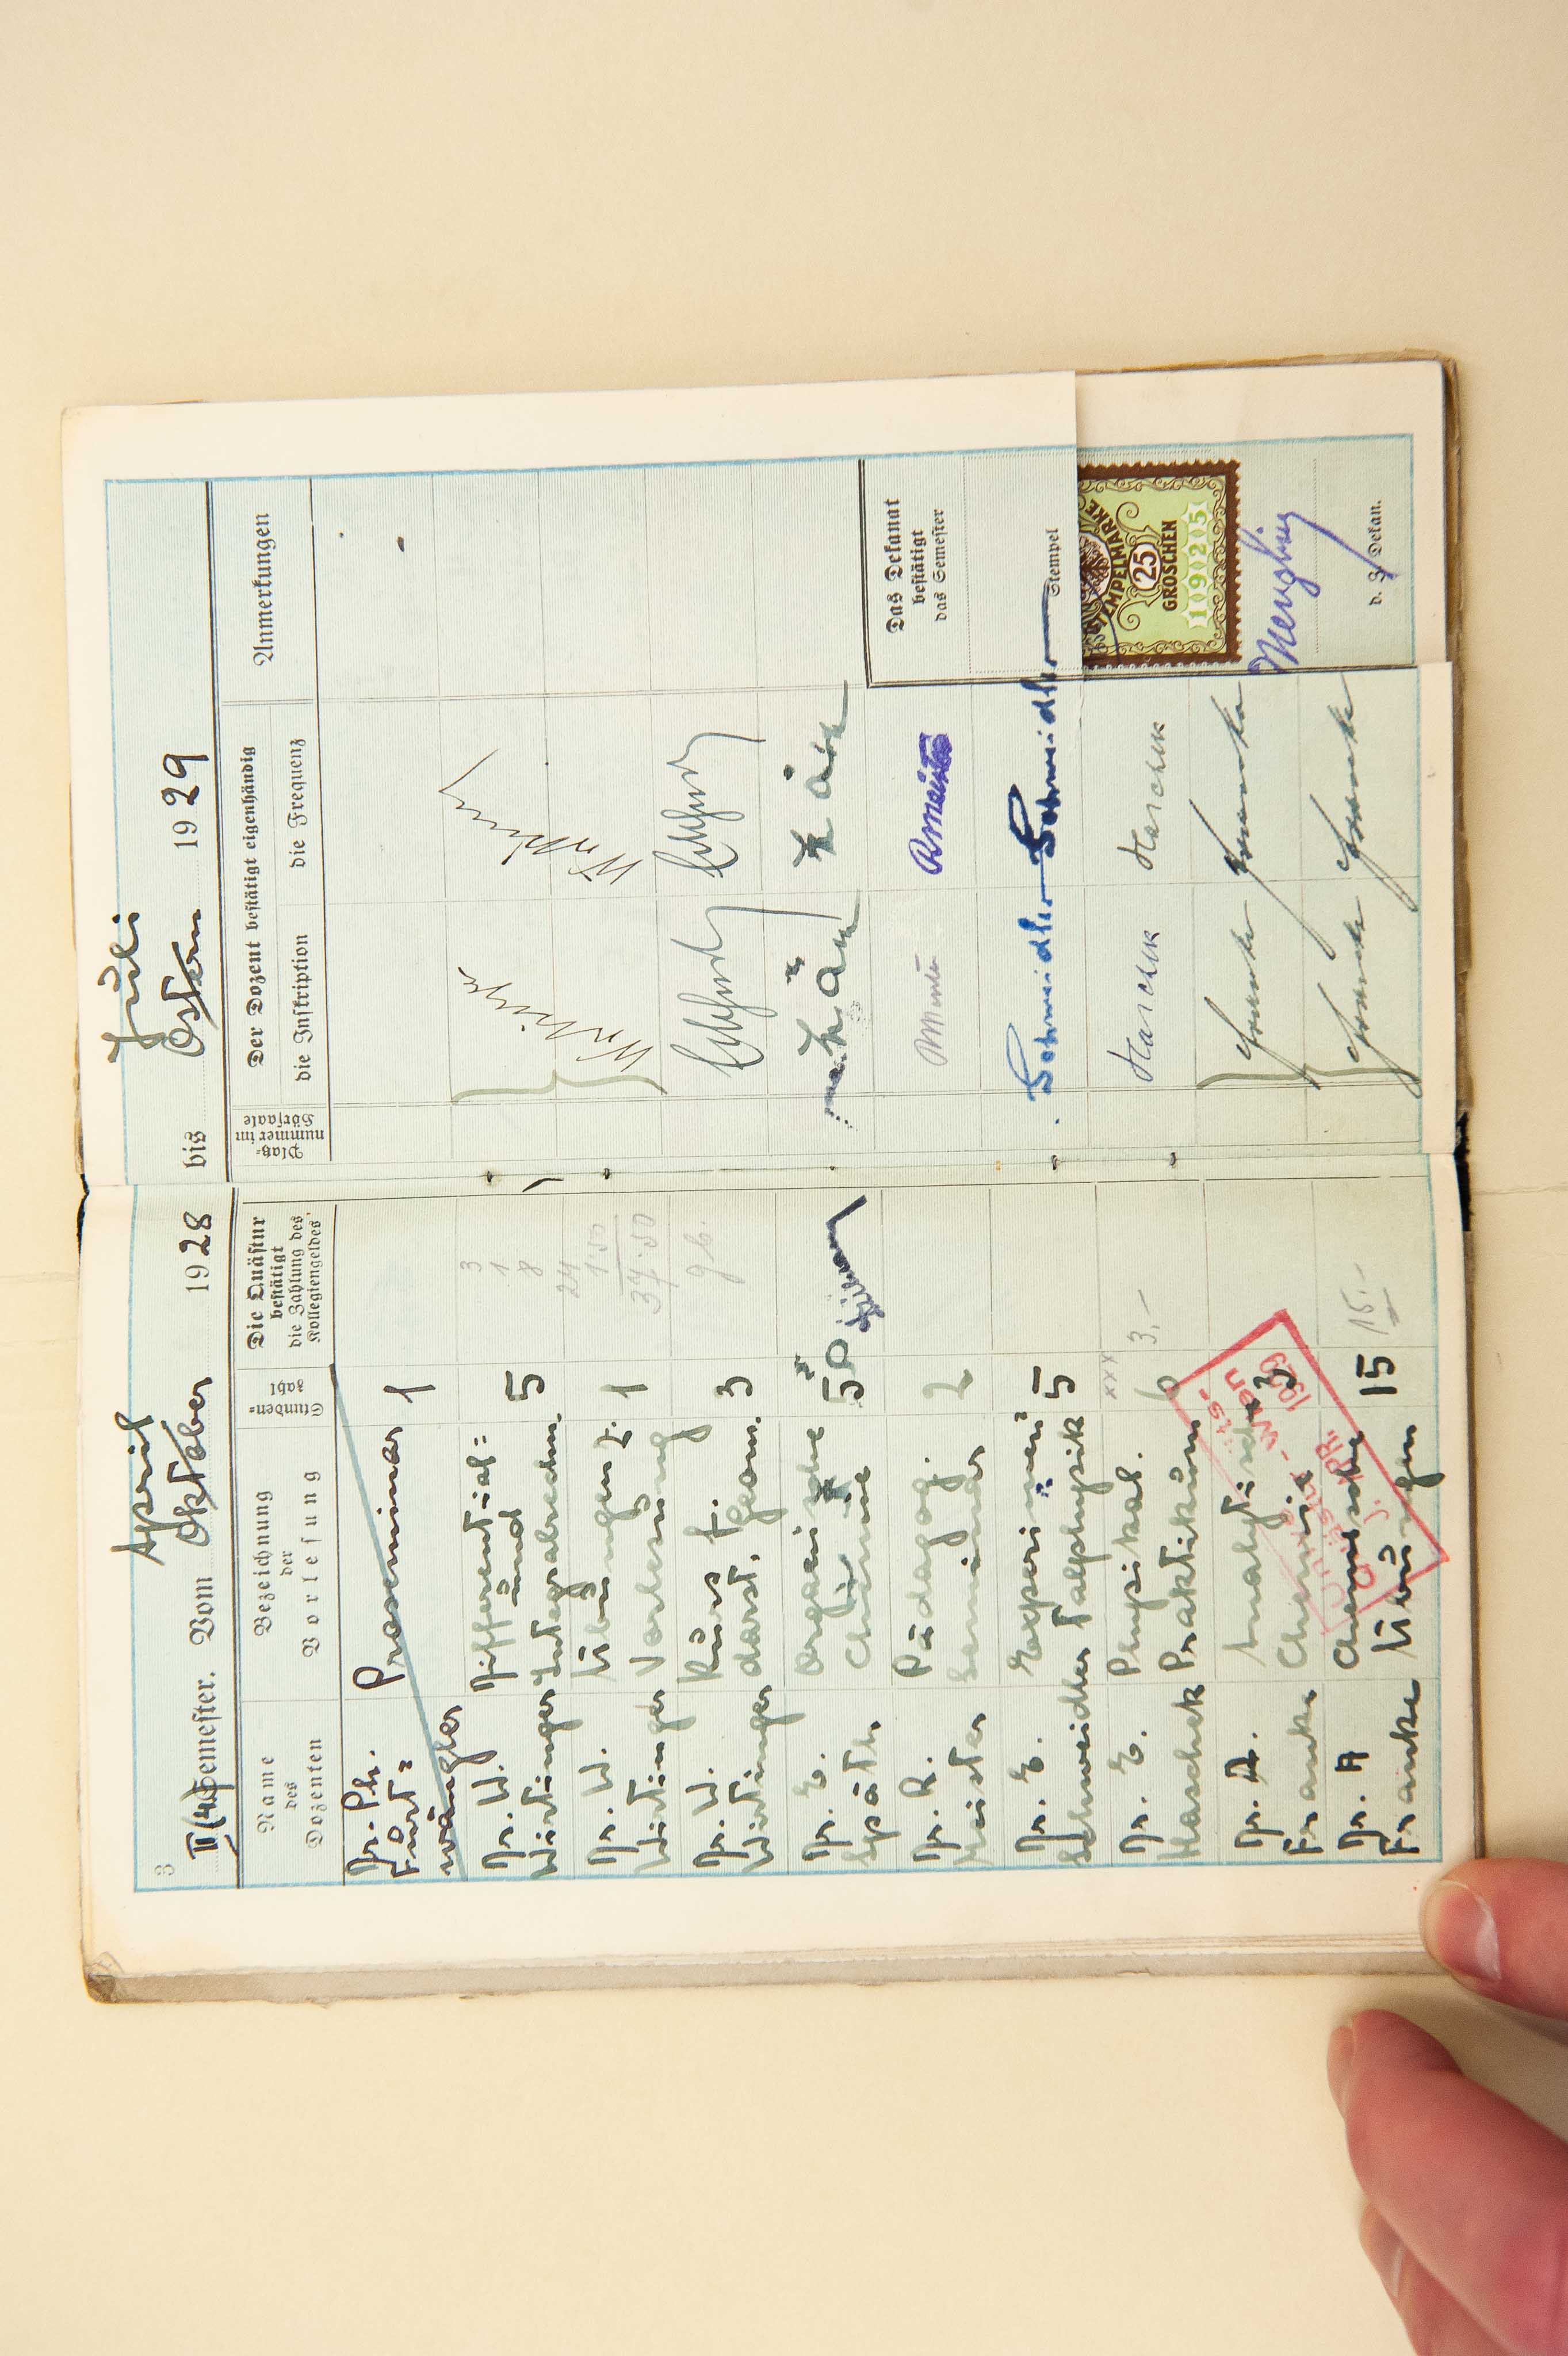 3
April Juli
II (4) Semester. Vom Oktober 1928 bis Ostern 1929
Name
des
Dozenten
Bezeichnung
der
Vorlesung
Stunden-
zahl
Die Quästur
bestätigt
die Zahlung des
Kollegiengeldes
Platz-
nummer im
Hörsaale
Der Dozent bestätigt eigenhändig
die Inskription
die Frequenz
Anmerkungen
Dr. Ph.
Furt=
wängler
Proseminar
1
Dr. W.
Wirtinger
Differential=
und
Integralrechn.
5
3
1
8
24
Dr. W.
Wirtinger
Übungen z.
Vorlesung
1
1·50
37·50
Wirtinger
Wirtinger
Dr. W.
Wirtinger
Kurs f.
darst. geom.
3
Dr. E.
Späth
Organische
Chemie
5
Dr. R.
Meister
Pädagog.
Seminar
2
Meister
RMeister
Dr. E.
Schweidler
Experimen
talphysik
5
Schweidler
Schweidler
Dr. E.
Haschek
Physikal.
Praktikum
xxx
6
3,–
Haschek
Haschek
Dr. A.
Franke
Analytische
Chemie
3
Franke
Franke
Dr. A
Franke
Chemische
Übungen
15
15.–
Franke
Franke
Universitäts-
Quästur - Wien
APR. 1929
Das Dekanat
bestätigt
das Semester
Stempel
STEMPELMARKE
25
GROSCHEN
1925
Menghin
d. Z. Dekan.